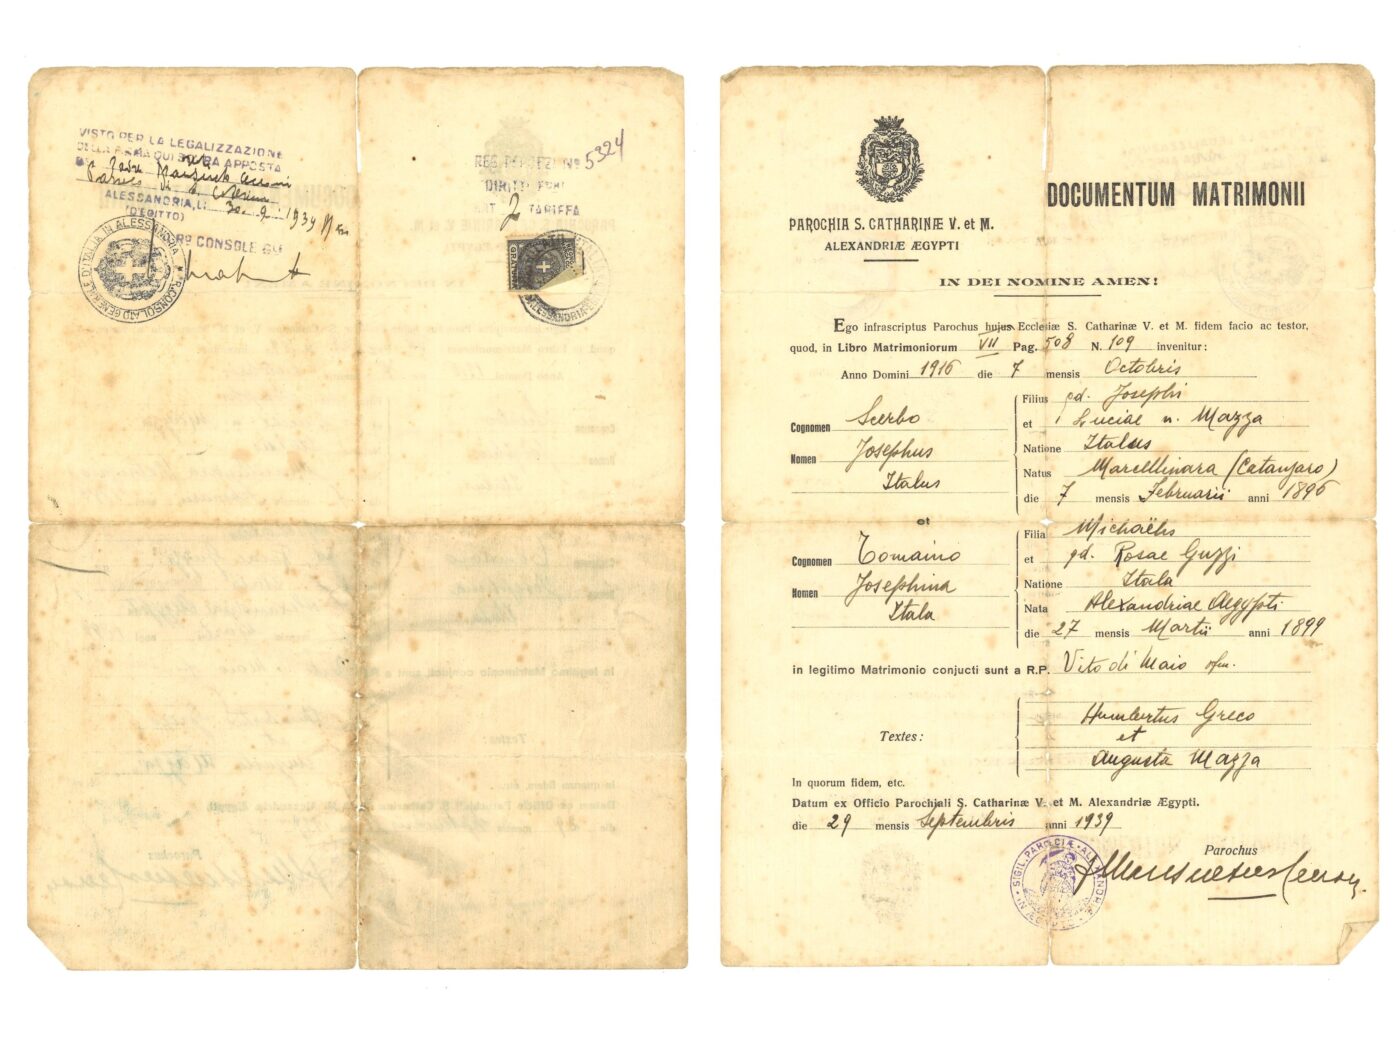 VISTO PER LA LEGALIZZAZIONE
DELLA FIRMA QUI SOPRA APPOSTA
ALESSANDRIA, LI 30.9.1939
(D'EGITTO)
R. CONSOLATO GENERALE D'ITALIA IN ALESSANDRIA
Rº CONSOLE
REG. Nº 5324
DIRITTI
ART. 2 TARIFFA
PAROCHIA S. CATHARINÆ V. et M.
ALEXANDRIÆ ÆGYPTI
DOCUMENTUM MATRIMONII
IN DEI NOMINE AMEN!
Ego infrascriptus Parochus hujus Ecclesiæ S. Catharinæ V. et M. fidem facio ac testor,
quod, in Libro Matrimoniorum VII Pag. 508 N. 109 invenitur:
Anno Domini 1916 die 7 mensis Octobris
Cognomen Scerbo
Nomen Josephus
Italus
Filius qd. Josephi
et Luciae n. Mazza
Natione Italus
Natus Marcellinara (Catanzaro)
die 7 mensis Februarii anni 1896
et
Cognomen Tomaino
Nomen Josephina
Itala
Filia Michaëlis
et qd. Rosae Guzzi
Natione Itala
Nata Alexandriae Aegypti
die 27 mensis Martii anni 1899
in legitimo Matrimonio conjucti sunt a R.P. Vito di Maio ofm.
Textes: Humbertus Greco
et
Augusta Mazza
In quorum fidem, etc.
Datum ex Officio Parochiali S. Catharinæ V. et M. Alexandriæ Ægypti.
die 29 mensis Septembris anni 1939
Parochus
SIGIL. PAROCIÆ